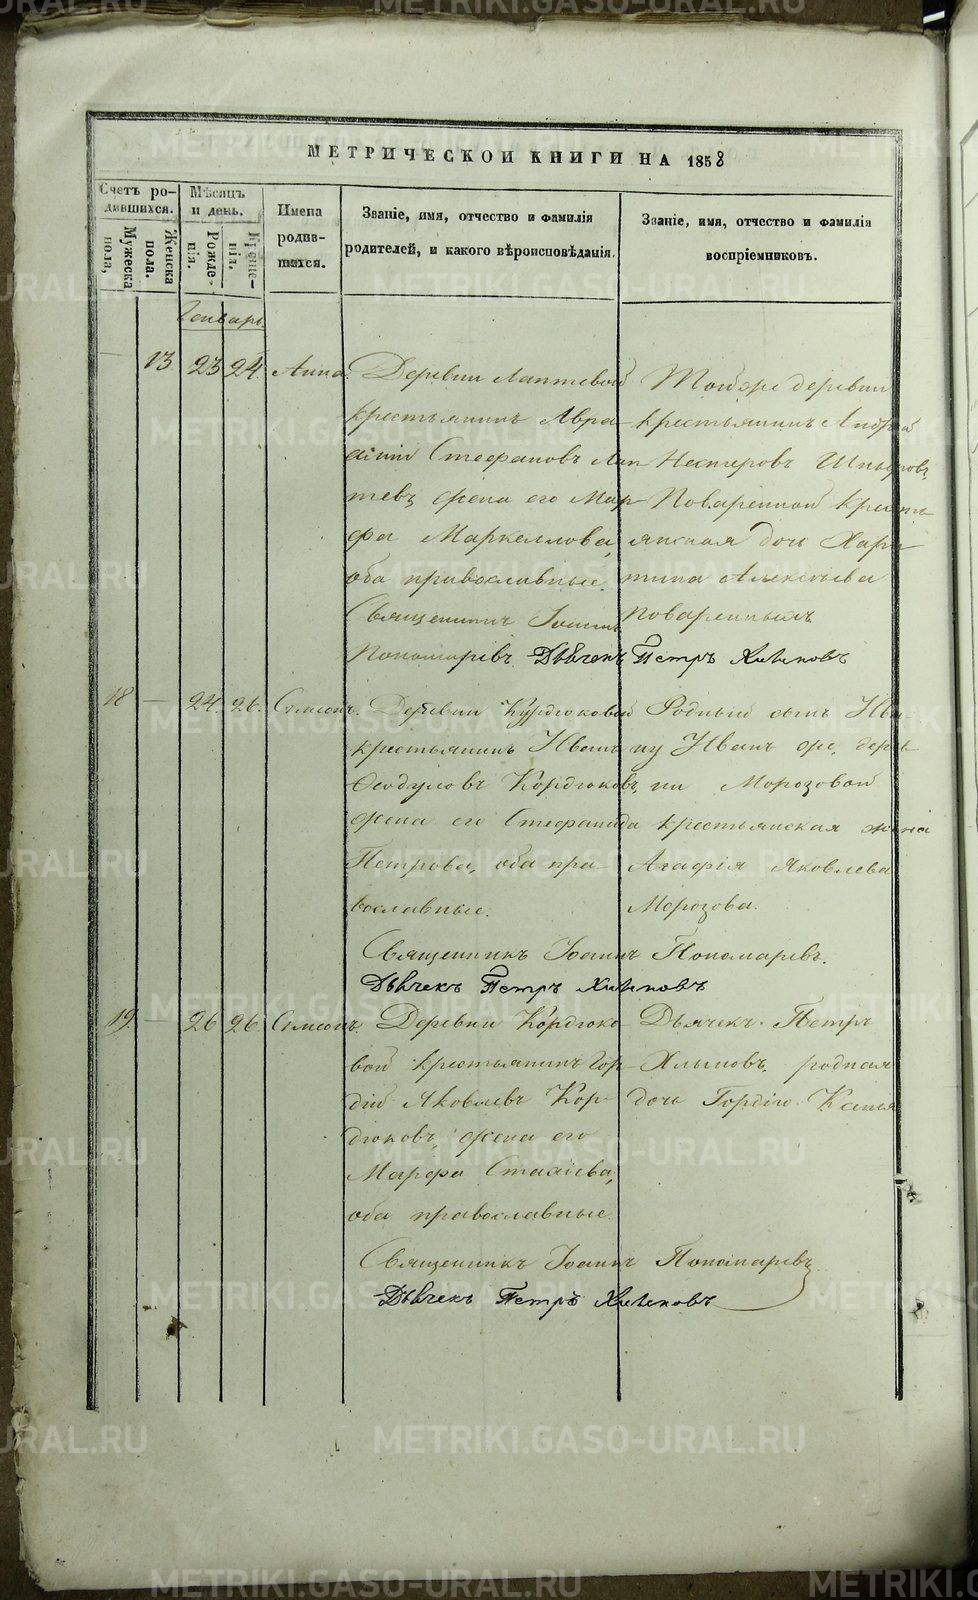 МЕТРИЧЕСКОЙ КНИГИ НА 1858
Счетъ ро-
дившихся.
Мужеска
пола,
Женска
пола.
Мѣсяцъ
и день.
Рожде-
нія.
Креще-
нія.
Имена
родив-
шихся.
Званіе, имя, отчество и фамилія
родителей, и какого вѣроисповѣданія.
Званіе, имя, отчество и фамилія
воспріемниковъ.
Генварь
13 23 24 Анна.
Деревни Лаптевой
крестьянинъ Авра-
амій Стефановъ Лап
тевъ, жена его Мар
фа Маркеллова,
оба православные.
Священникъ Іоаннъ
Пономаревъ. Дьячекъ Петръ Хлыновъ
Тойже деревни
крестьянинъ Андрей
Нестеровъ
Поваренной кресть
янская дочь Хари
тина Алексѣева
Поваренныхъ
18 — 24. 26. Симеонъ.
Деревни Курдюковой
крестьянинъ Иванъ
Ѳеодуловъ Кордюковъ,
жена его Стефанида
Петрова, оба пра-
вославные.
Родный сынъ Ива
ну Иванъ же, дерев
ни Морозовой
крестьянская жена
Агафія Яковлева
Морозова.
Священникъ Іоаннъ Пономаревъ.
Дьячекъ Петръ Хлыновъ
19. — 26 26. Симеонъ.
Деревни Кордюко-
вой крестьянинъ Гор-
дій Яковлевъ Кор-
дюковъ, жена его
Марфа
оба православные.
Дьячекъ Петръ
Хлыновъ, родная
дочь Гордію Ксенья
Священникъ Іоаннъ Пономаревъ
Дьячекъ Петръ Хлыновъ
METRIKI.GASO-URAL.RU